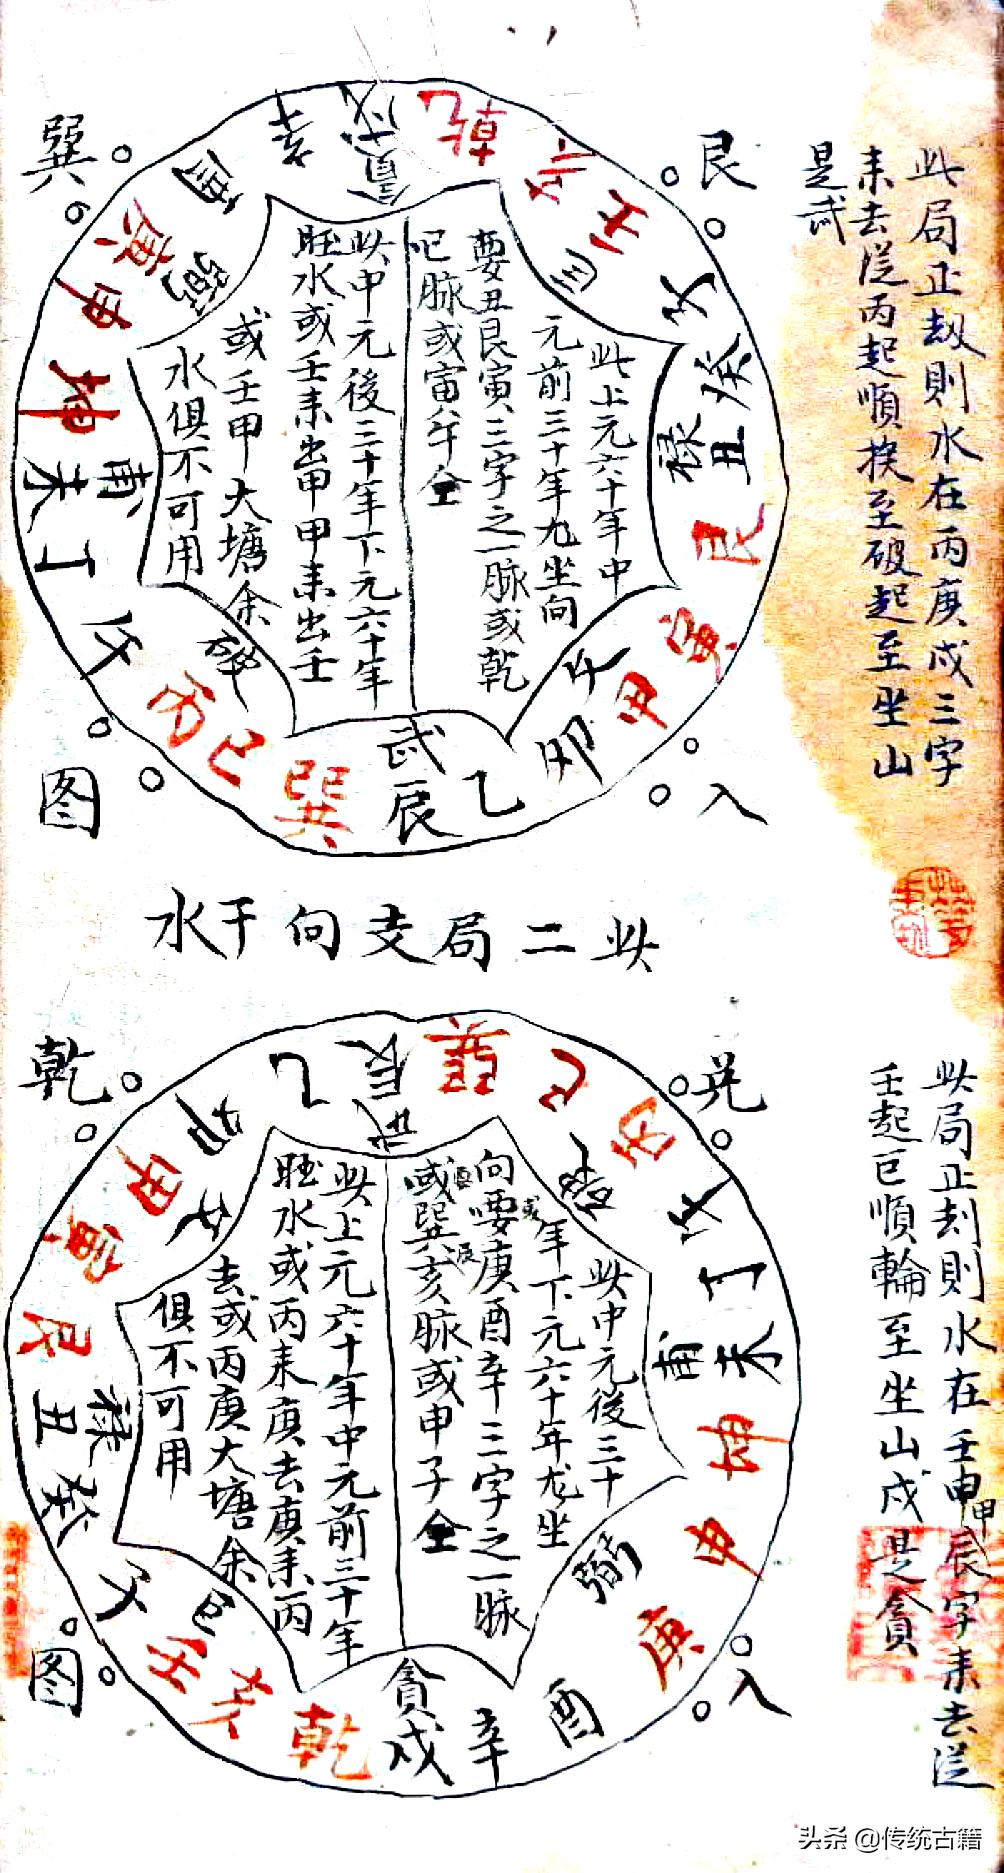 此局正刼則水在丙庚戌三字
耒去従丙起順挨至破起至坐山
是武
艮
巽
图
入
戌
乾
亥
壬
子
癸
丑
艮
寅
甲
卯
乙
辰
巽
巳
丙
午
丁
未
坤
申
庚
酉
辛
貪
巨
禄
文
武
破
甫
弼
此上元六十年中
元前三十年九坐向
要丑艮寅三字之一脉或乾
巳脉或寅午全
此中元後三十年下元六十年
旺水或壬耒出甲甲耒出壬
或壬甲大塘余
水俱不可用
此二局支向干水
此局正刼則水在壬申甲辰字耒去従
壬起巨順輪至坐山戌是貪
兑
乾
图
入
辰
巽
巳
丙
午
丁
未
坤
申
庚
酉
辛
戌
乾
亥
壬
子
癸
丑
艮
寅
甲
卯
乙
武
破
甫
弼
貪
巨
禄
文
此中元後三十
年下元六十年龙坐
向要庚酉辛三字之一脉
或巽亥脉或申子全
此上元六十年中元前三十年
旺水或丙耒庚去庚耒丙
去或丙庚大塘余
俱不可用
头条 @传统古籍